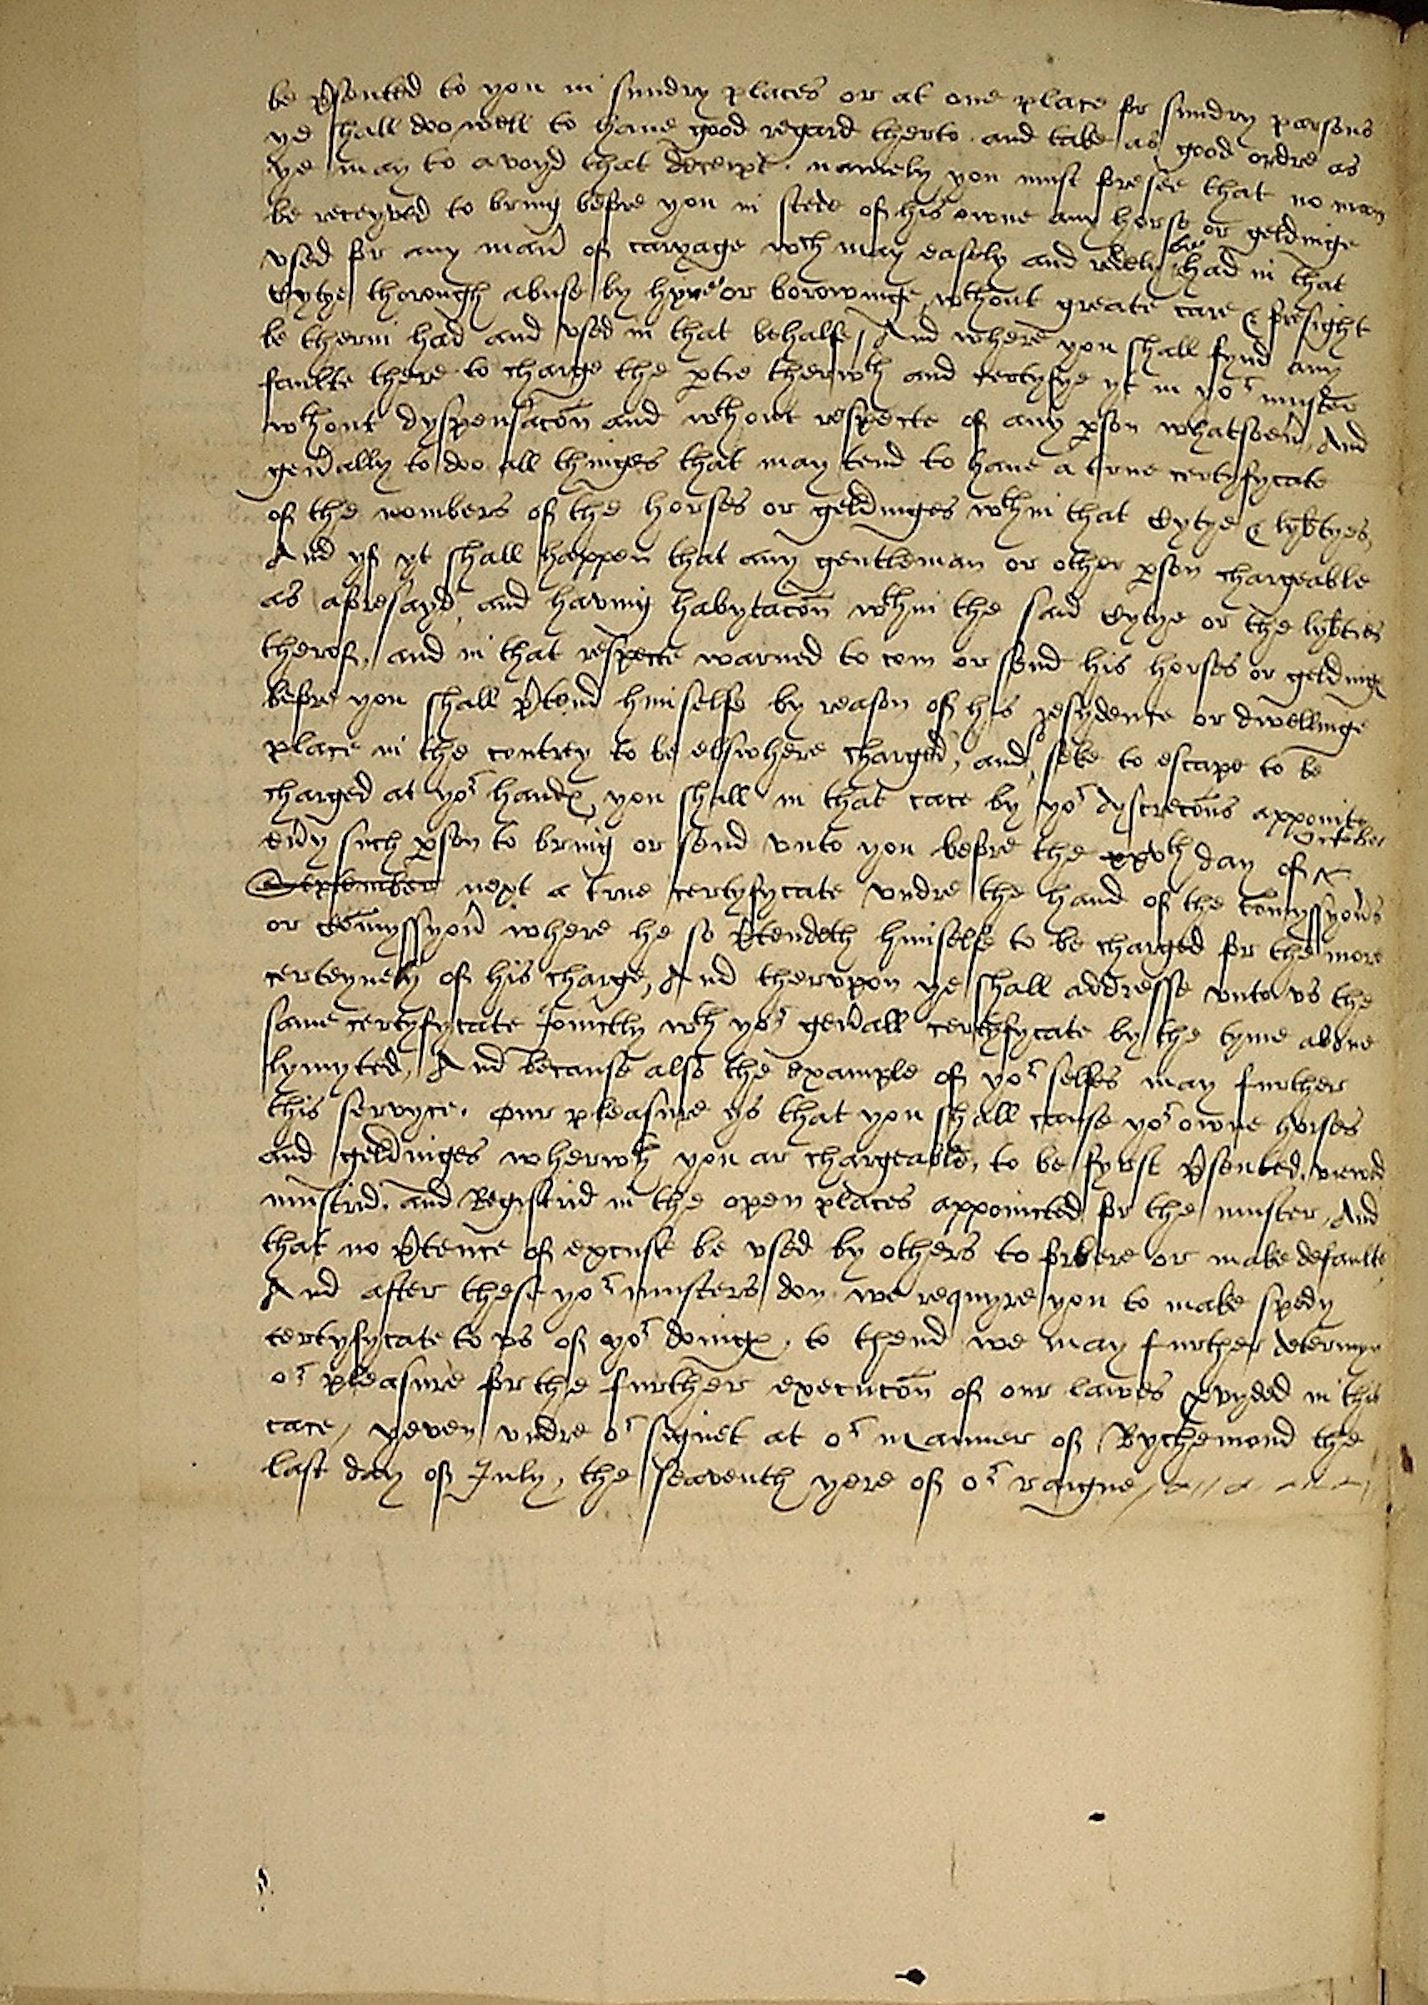 be p̃sented to you in sundry places or at one place for sundry parsons
ye shall doo well to haue good regard therto and take as good ordre as
ye may to avoyd that deceipt. namely you must foresee that no man
be receyved to bring before you in stede of his owne any horse or geldinge
vsed for any man̄ of caryage wch may easely and redely be had in that
Cytye thorough abuse by hyre or borowinge, wthout greate care & foresight
be therin had and vsed in that behalfe, And where you shall fynd any
faulte there to charge the ptie therwth and certyfye yt in yor muster
wthout dyspensacōn and wthout respecte of any pson whatsoeũ, And
geñally to doo all thinges that may tend to haue a true certyfycate
of the nombers of the horses or geldinges wthin that Cytye & lyb̃tyes,
And yf yt shall happen that any gentleman or other pson chargeable
as aforesayd, and having habytacōn wthin the said Cytye or the lyb̃ties
therof, and in that respecte warned to com or send his horses or gelding
before you shall p̃tend himselfe by reason of his resydence or dwellinge
place in the contrey to be elswhere charged, and so seke to escape to be
charged at yor hand, you shall in that cace by yor dyscrecōns appointe
eũy such pson to bring or send vnto you before the xxvth day of October
September next a true certyfycate vndre the hand of the Com̃yssyoñs
or Com̃yssyoñ where he so p̃tendeth himselfe to be charged for the more
certeynety of his charge, And thervpon ye shall addresse vnto vs the
same certyfycate Joinctly wth yor geñall certyfycate by the tyme aboue
lymyted, And because also the example of yor selfes may further
this servyce. Our pleasure ys that you shall cause yor owne horses
and geldinges wherwth you ar chargeable, to be fyrst p̃sented, viewed
mustrid, and Registrid in the open places appoincted for the muster, And
that no p̃tence of excuse be vsed by others to forbere or make defaulte,
And after these yor musters don we requyre you to make spedy
certyfycate to vs of yor doing, to thend we may further determyn
or pleasure for the further execucōn of our lawes pvyded in this
cace, yeven vndre or signet at or Mannor of Rychemond the
last day of July, the seaventh yere of or raigne,